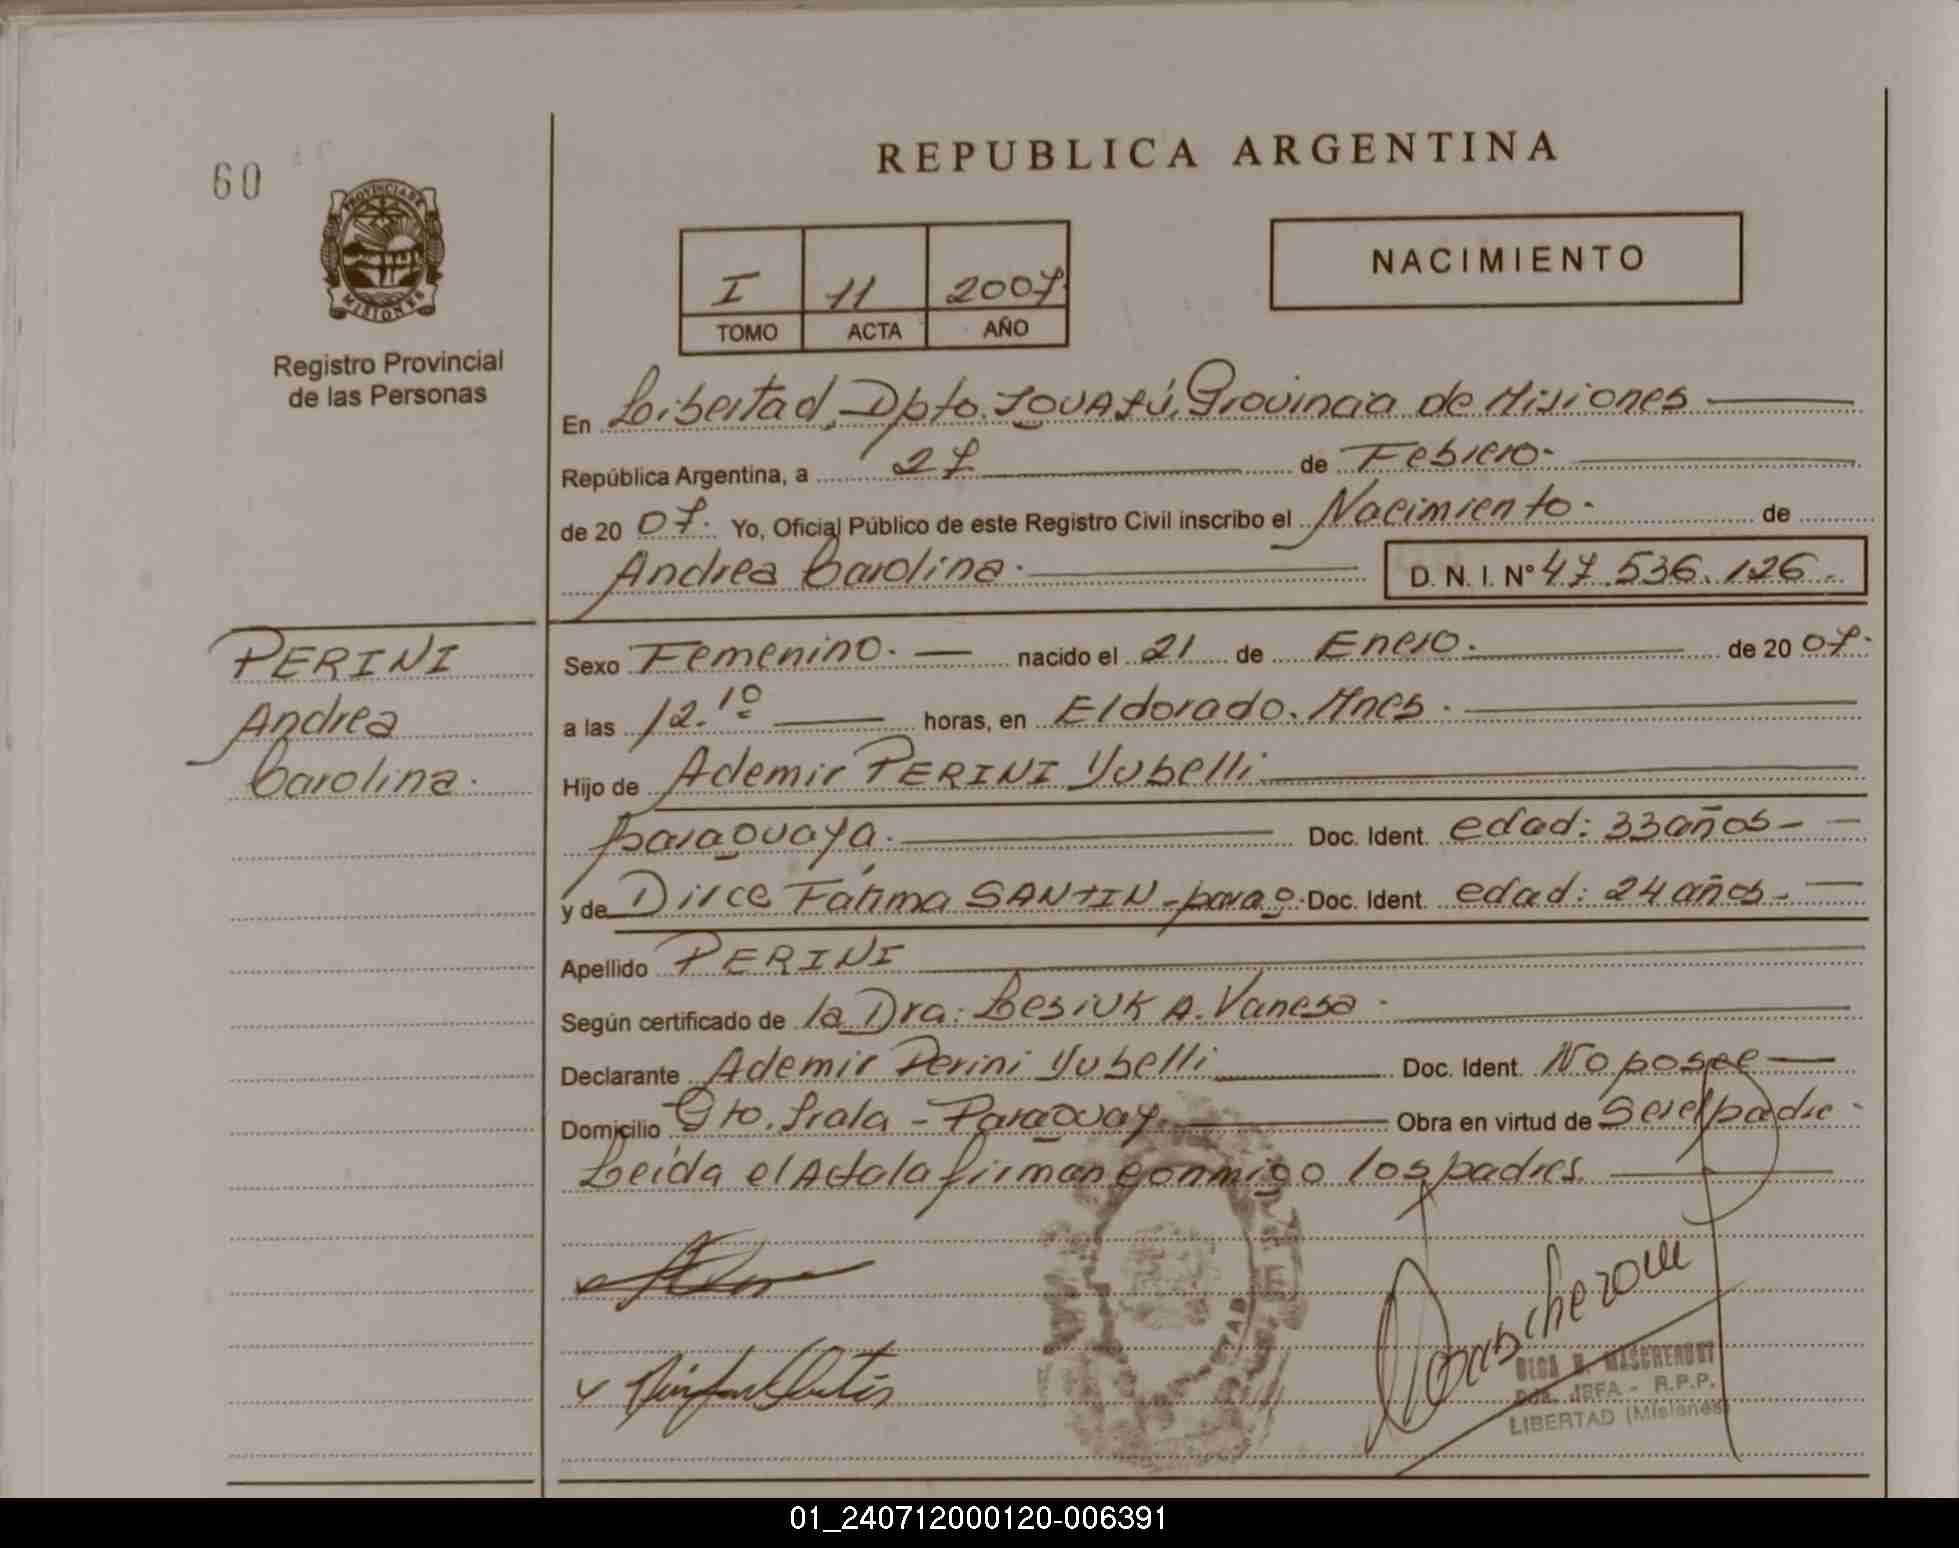 60
REPUBLICA ARGENTINA
PROVINCIA DE
MISIONES
Registro Provincial
de las Personas
I 11 2007
TOMO ACTA AÑO
NACIMIENTO
En Libertad, Dpto. IGUAZÚ, Provincia de Misiones
República Argentina, a 27 de Febrero.
de 20 07. Yo, Oficial Público de este Registro Civil inscribo el Nacimiento. de
Andrea Carolina. D. N. I. N° 47.536.126.
PERINI
Andrea
Carolina.
Sexo Femenino. nacido el 21 de Enero. de 20 07.
a las 12.10 horas, en Eldorado. Mnes.
Hijo de Ademir PERINI Yubelli
paraguaya. Doc. Ident. edad: 33 años-
y de Dirce Fátima SANTIN - parag. Doc. Ident. edad: 24 años-
Apellido PERINI
Según certificado de la Dra: Lesiuk A. Vanesa.
Declarante Ademir Perini Yubelli Doc. Ident. No posee
Domicilio Pto. Irala - Paraguay. Obra en virtud de Ser el padre.
Leída el Acta la firman conmigo los padres.
OLGA MASCHERONI
JEFA - R.P.P.
LIBERTAD (Misiones)
01_240712000120-006391